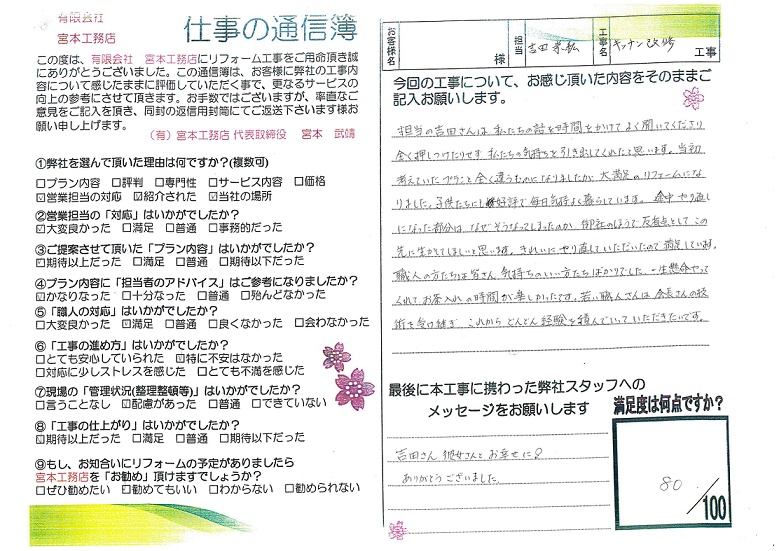 有限会社
宮本工務店
仕事の通信簿
この度は、有限会社 宮本工務店にリフォーム工事をご用命頂き誠
にありがとうございました。この通信簿は、お客様に弊社の工事内
容について感じたままに評価していただく事で、更なるサービスの
向上の参考にさせて頂きます。お手数ではございますが、率直なご
意見をご記入を頂き、同封の返信用封筒にてご返送下さいます様お
願い申し上げます。
(有)宮本工務店 代表取締役 宮本 武靖
①弊社を選んで頂いた理由は何ですか?(複数可)
□プラン内容 □評判 □専門性 □サービス内容 □価格
☑営業担当の対応 ☑紹介された ☑当社の場所
②営業担当の「対応」はいかがでしたか?
☑大変良かった □満足 □普通 □事務的だった
③ご提案させて頂いた「プラン内容」はいかがでしたか?
☑期待以上だった □満足 □普通 □期待以下だった
④プラン内容に「担当者のアドバイス」はご参考になりましたか?
☑かなりなった □十分なった □普通 □殆んどなかった
⑤「職人の対応」はいかがでしたか?
□大変良かった ☑満足 □普通 □良くなかった □会わなかった
⑥「工事の進め方」はいかがでしたか?
□とても安心していられた ☑特に不安はなかった
□対応に少しストレスを感じた □とても不満を感じた
⑦現場の「管理状況(整理整頓等)」はいかがでしたか?
□言うことなし ☑配慮があった □普通 □できていない
⑧「工事の仕上がり」はいかがでしたか?
☑期待以上だった □満足 □普通 □期待以下だった
⑨もし、お知合いにリフォームの予定がありましたら
宮本工務店を「お勧め」頂けますでしょうか?
□ぜひ勧めたい ☑勧めてもいい □わからない □勧められない
お客様名 様 担当 吉田 工事名 キッチン改修 工事
今回の工事について、お感じ頂いた内容をそのままご
記入お願いします。
担当の吉田さんは私たちの話を時間をかけてよく聞いてくださり
全く押しつけたりせず、私たちの気持ちを引き出してくれたと思います。当初
考えていたプランと全く違うものになりましたが、大満足のリフォームにな
りました。子供たちにも好評で毎日気持よく暮らしています。途中やり直し
になった部分は、なぜそうなってしまったのか、御社のほうで反省点として この
先に生かしてほしいと思います。きれいにやり直していただいたので満足しています。
職人の方たちは皆さん気持ちのいい方たちばかりでした。一生懸命やって
くれて、お茶入れの時間が楽しかったです。若い職人さんは会長さんの技
術を受け継ぎ、これからどんどん経験を積んでいっていただきたいです。
最後に本工事に携わった弊社スタッフへの
メッセージをお願いします
吉田さん 彼女さんとお幸せに♡
ありがとうございました。
満足度は何点ですか?
80
/100